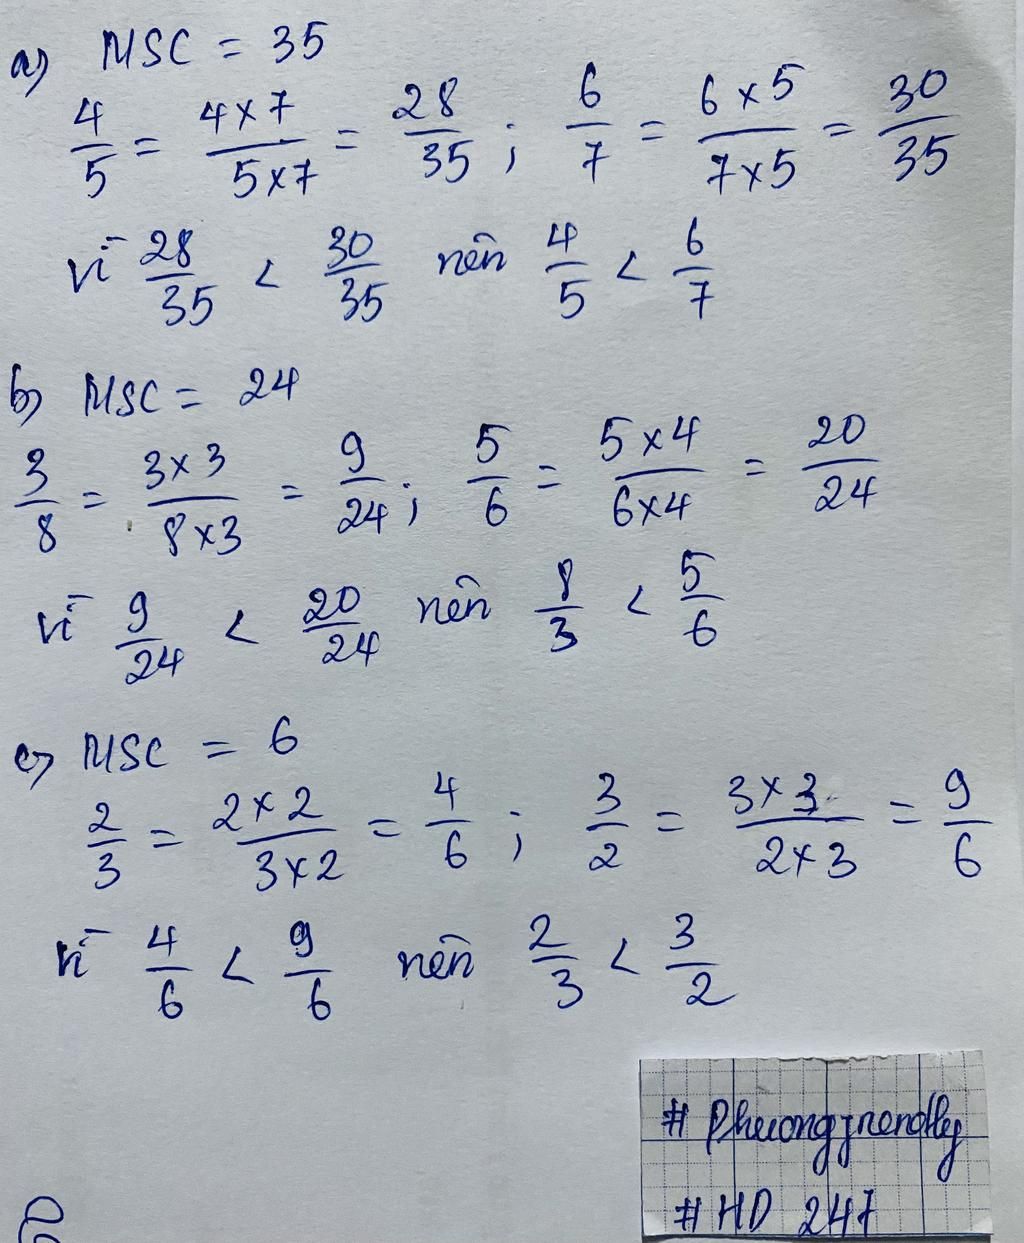 a) MSC = 35
4/5 = 4x7/5x7 = 28/35 ; 6/7 = 6x5/7x5 = 30/35
vì 28/35 < 30/35 nên 4/5 < 6/7
b) MSC = 24
3/8 = 3x3/8x3 = 9/24 ; 5/6 = 5x4/6x4 = 20/24
vì 9/24 < 20/24 nên 8/3 < 5/6
c) MSC = 6
2/3 = 2x2/3x2 = 4/6 ; 3/2 = 3x3/2x3 = 9/6
vì 4/6 < 9/6 nên 2/3 < 3/2
# Phuongfriendly
# HD 247